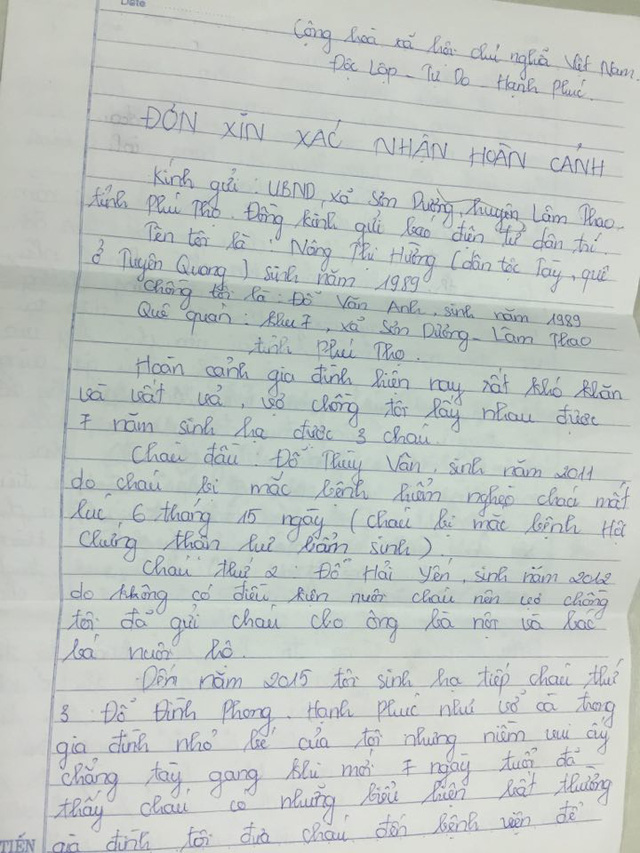 Date
Cộng hoà xã hội chủ nghĩa Việt Nam.
Độc Lập - Tự Do - Hạnh Phúc.
ĐƠN XIN XÁC NHẬN HOÀN CẢNH
Kính gửi : UBND xã Sơn Dương, huyện Lâm Thao,
tỉnh Phú Thọ. Đồng kính gửi báo điện tử dân trí.
Tên tôi là : Nông Thị Hường (dân tộc Tày, quê
ở Tuyên Quang) sinh năm 1989
Chồng tôi là : Đỗ Văn Anh, sinh năm 1989
Quê quán : khu 7, xã Sơn Dương - Lâm Thao
tỉnh Phú Thọ.
Hoàn cảnh gia đình hiện nay rất khó khăn
và vất vả, vợ chồng tôi lấy nhau được
7 năm sinh hạ được 3 cháu.
Cháu đầu : Đỗ Thùy Vân, sinh năm 2011
do cháu bị mắc bệnh hiểm nghèo cháu mất
lúc 6 tháng 15 ngày (cháu bị mắc bệnh Hội
Chứng thận hư bẩm sinh).
Cháu thứ 2 : Đỗ Hải Yến, sinh năm 2012
do không có điều kiện nuôi cháu nên vợ chồng
tôi đã gửi cháu cho ông bà nội và bác
bá nuôi hộ.
Đến năm 2015 tôi sinh hạ tiếp cháu thứ
3 : Đỗ Đình Phong. Hạnh phúc như vỡ oà trong
gia đình nhỏ bé của tôi nhưng niềm vui ấy
chẳng tày gang khi mới 7 ngày tuổi đã
thấy cháu có những biểu hiện bất thường
gia đình tôi đưa cháu đến bệnh viện để
TIẾN